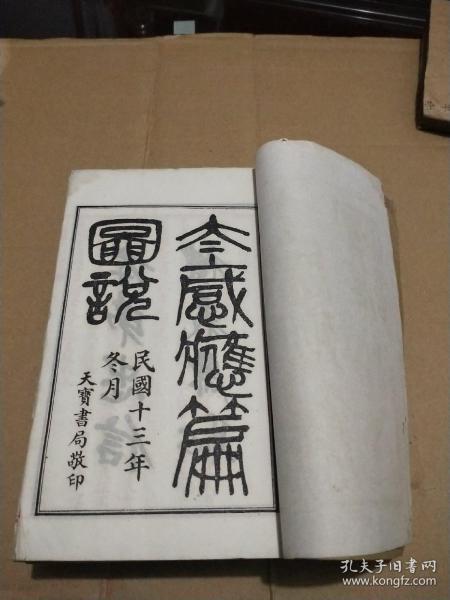 太上感應篇
圖說
民國十三年
冬月
天寶書局敬印
孔夫子旧书网
www.kongfz.com